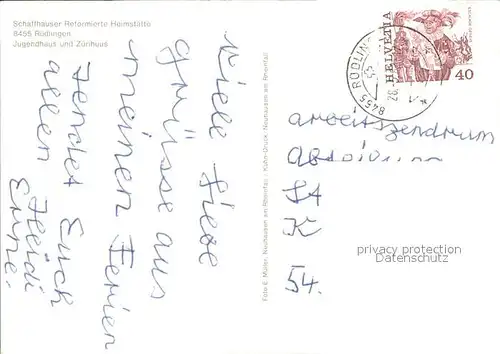 Schaffhauser Reformierte Heimstätte
8455 Rüdlingen
Jugendhaus und Zürihuus
Viele liebe
Grüsse aus
meinen Ferien
sendet Euch
allen Heidi
Foto E. Müller, Neuhausen am Rheinfall · Kühn-Druck, Neuhausen am Rheinfall
8455 RÜDLINGEN
HELVETIA
40
Arbeitszentrum
St
K
54.
privacy protection
Datenschutz